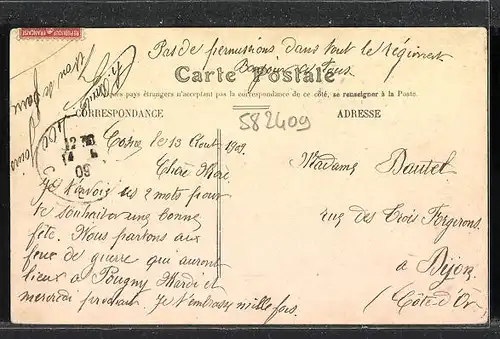 REPUBLIQUE FRANÇAISE
Pas de permissions dans tout le régiment.
Bonjour à tous
Carte Postale
pays étrangers n'acceptent pas la correspondance de ce côté, se renseigner à la Poste.
CORRESPONDANCE
ADRESSE
582409
le 13 Août 1909.
Chère Mère
Je t'envoie ces 2 mots pour
te souhaiter une bonne
fête. Nous partons aux
feux de guerre qui auront
lieux à Pougny Mardi et
mercredi prochain. Je t'embrasse mille fois.
Madame Bautet
rue des Trois Forgerons.
à Dijon
(Côte-d'Or)
09